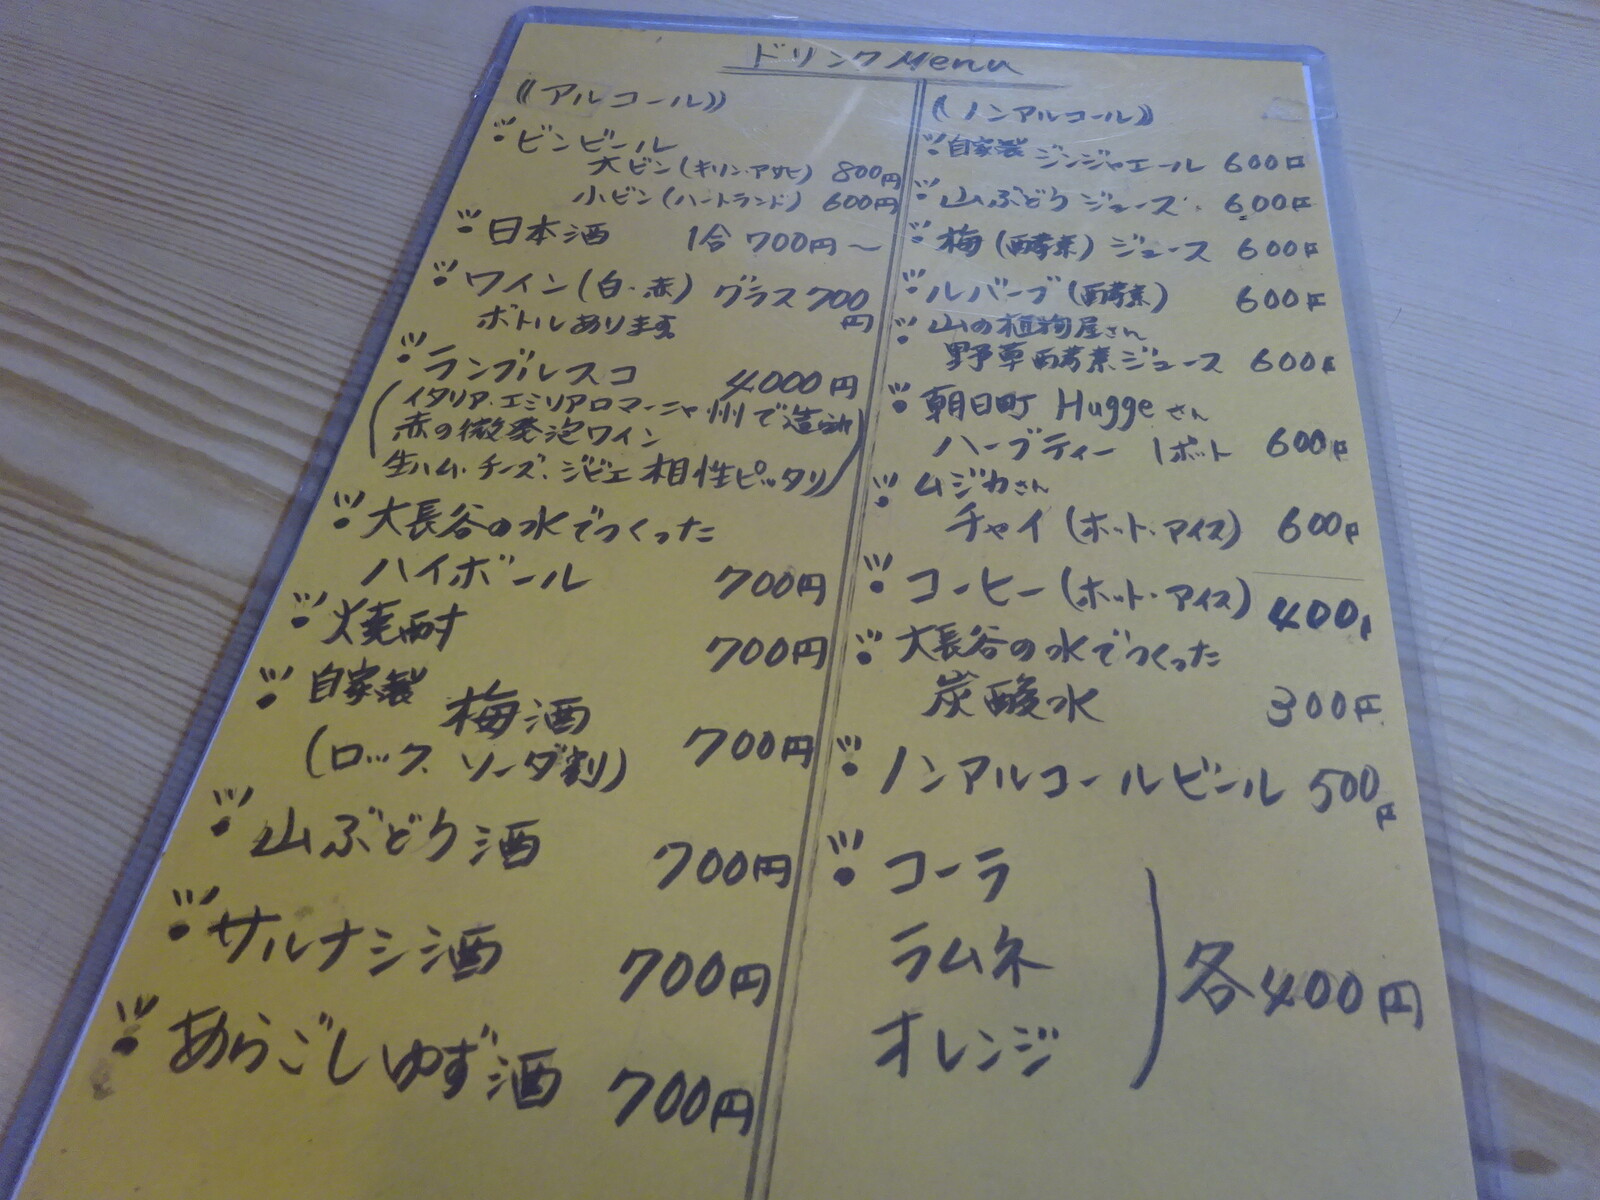 ドリンクMenu
《アルコール》
ビンビール
大ビン(キリン・アサヒ) 800円
小ビン(ハートランド) 600円
日本酒 1合 700円〜
ワイン(白・赤) グラス 700円
ボトルあります
ランブルスコ 4000円
(イタリア・エミリアロマーニャ州で造られ
赤の微発泡ワイン
生ハム・チーズ、ジビエ相性ピッタリ)
大長谷の水でつくった
ハイボール 700円
焼酎 700円
自家製 梅酒 700円
(ロック、ソーダ割)
山ぶどう酒 700円
サルナシ酒 700円
あらごしゆず酒 700円
《ノンアルコール》
自家製 ジンジャエール 600円
山ぶどうジュース 600円
梅(酵素)ジュース 600円
ルバーブ(酵素) 600円
山の植物屋さん
野草酵素ジュース 600円
朝日町 Huggeさん
ハーブティー 1ポット 600円
ムジカさん
チャイ(ホット・アイス) 600円
コーヒー(ホット・アイス) 400円
大長谷の水でつくった
炭酸水 300円
ノンアルコールビール 500円
コーラ
ラムネ
オレンジ
各400円